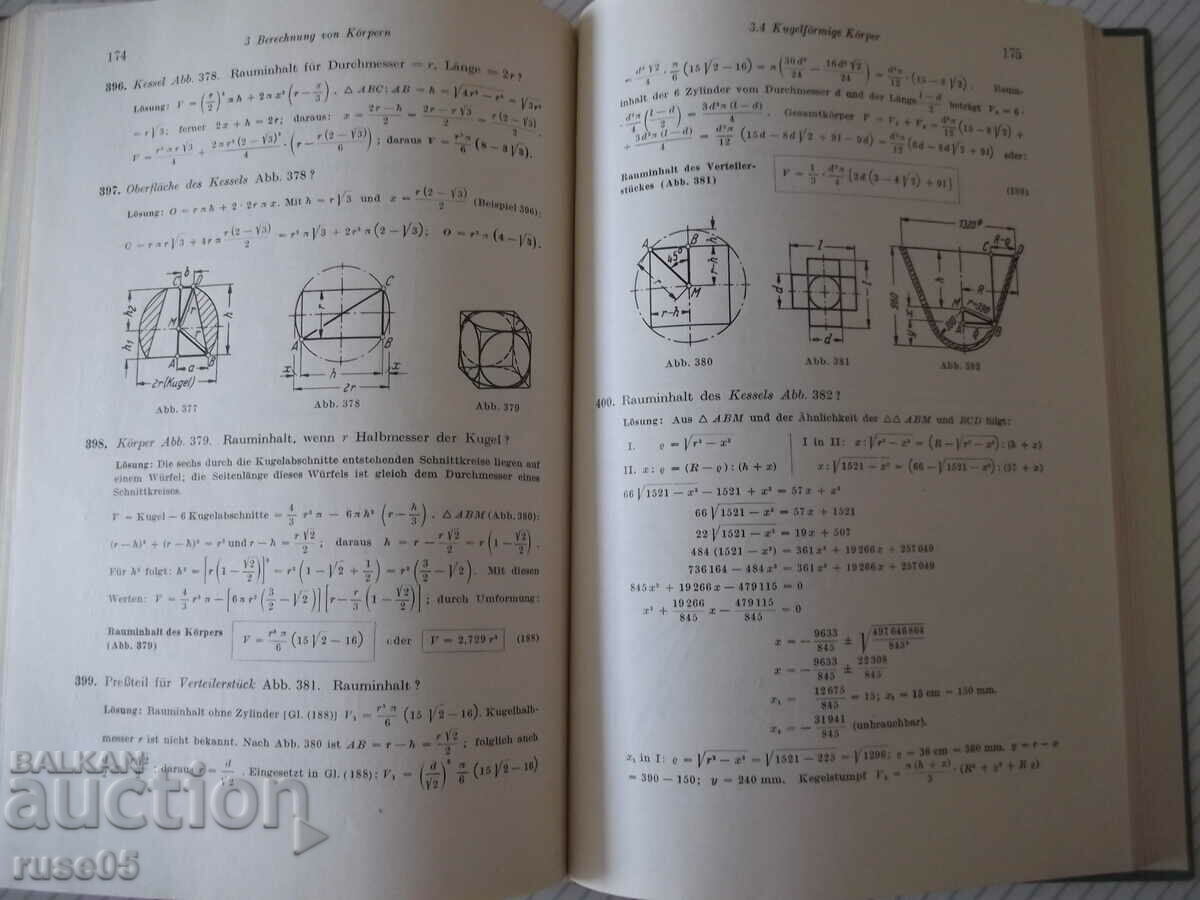 174
3 Berechnung von Körpern
396. Kessel Abb. 378. Rauminhalt für Durchmesser = r, Länge = 2r?
Lösung: V = (r/2)² π h + 2π x² (r − x/3). △ ABC: AB = h = √(4r² − r²) = √(3r²)
= r√3; ferner 2x + h = 2r; daraus: x = (2r − h)/2 = (2r − r√3)/2 = r(2 − √3)/2.
V = r² π r √3/4 + 2π r² (2 − √3)²/4 · (r − r(2 − √3)/6); daraus V = r³π/6 (8 − 3√3).
397. Oberfläche des Kessels Abb. 378?
Lösung: O = r π h + 2 · 2r π x. Mit h = r√3 und x = r(2 − √3)/2 (Beispiel 396):
O = r π r√3 + 4r π r(2 − √3)/2 = r² π√3 + 2r² π (2 − √3); O = r² π (4 − √3).
Abb. 377
Abb. 378
Abb. 379
398. Körper Abb. 379. Rauminhalt, wenn r Halbmesser der Kugel?
Lösung: Die sechs durch die Kugelabschnitte entstehenden Schnittkreise liegen auf
einem Würfel; die Seitenlänge dieses Würfels ist gleich dem Durchmesser eines
Schnittkreises.
V = Kugel − 6 Kugelabschnitte = 4/3 r³ π − 6π h² (r − h/3). △ ABM (Abb. 380):
(r − h)² + (r − h)² = r² und r − h = r√2/2; daraus h = r − r√2/2 = r (1 − √2/2).
Für h² folgt: h² = [r (1 − √2/2)]² = r² (1 − √2 + 1/2) = r² (3/2 − √2). Mit diesen
Werten: V = 4/3 r³ π − [6π r² (3/2 − √2)] [r − r/3 (1 − √2/2)]; durch Umformung:
Rauminhalt des Körpers
(Abb. 379)
V = r³ π/6 (15√2 − 16) oder V = 2,729 r³ (188)
399. Preßteil für Verteilerstück Abb. 381. Rauminhalt?
Lösung: Rauminhalt ohne Zylinder [Gl. (188)] V₁ = r³ π/6 (15√2 − 16). Kugelhalb-
messer r ist nicht bekannt. Nach Abb. 380 ist AB = r − h = r√2/2; folglich auch
daraus r = d/√2. Eingesetzt in Gl. (188): V₁ = (d/√2)³ π/6 (15√2 − 16)
3.4 Kugelförmige Körper
175
= d³√2/4 · π/6 (15√2 − 16) = π (30 d³/24 − 16 d³√2/24) = d³π/12 · (15 − 8√2). Raum-
inhalt der 6 Zylinder vom Durchmesser d und der Länge (l − d)/2 beträgt V₂ = 6 ·
· d²π/4 (l − d)/2 = 3 d²π (l − d)/4. Gesamtkörper V = V₁ + V₂ = d³π/12 (15 − 8√2) +
+ 3 d²π (l − d)/4 = d²π/12 (15d − 8d√2 + 9l − 9d) = d²π/12 (6d − 8d√2 + 9l) oder:
Rauminhalt des Verteiler-
stückes (Abb. 381)
V = 1/3 · d²π/4 [2d (3 − 4√2) + 9l]
(189)
Abb. 380
Abb. 381
Abb. 382
400. Rauminhalt des Kessels Abb. 382?
Lösung: Aus △ ABM und der Ähnlichkeit der △△ ABM und BCD folgt:
I. ϱ = √(r² − x²)
I in II: x : √(r² − x²) = (R − √(r² − x²)) : (h + x)
II. x : ϱ = (R − ϱ) : (h + x)
x : √(1521 − x²) = (66 − √(1521 − x²)) : (57 + x)
66√(1521 − x²) − 1521 + x² = 57 x + x²
66√(1521 − x²) = 57 x + 1521
22√(1521 − x²) = 19 x + 507
484 (1521 − x²) = 361 x² + 19266 x + 257049
736164 − 484 x² = 361 x² + 19266 x + 257049
845 x² + 19266 x − 479115 = 0
x² + 19266/845 x − 479115/845 = 0
x = − 9633/845 ± √(497646864/845²)
x = − 9633/845 ± 22308/845
x₁ = 12675/845 = 15; x₁ = 15 cm = 150 mm.
x₂ = − 31941/845 (unbrauchbar).
x₁ in I: ϱ = √(r² − x²) = √(1521 − 225) = √1296; ϱ = 36 cm = 360 mm. y = r − x
= 390 − 150; y = 240 mm. Kegelstumpf V₁ = π (h + x)/3 · (R² + ϱ² + R ϱ)
BALKAN
auction
ruse05